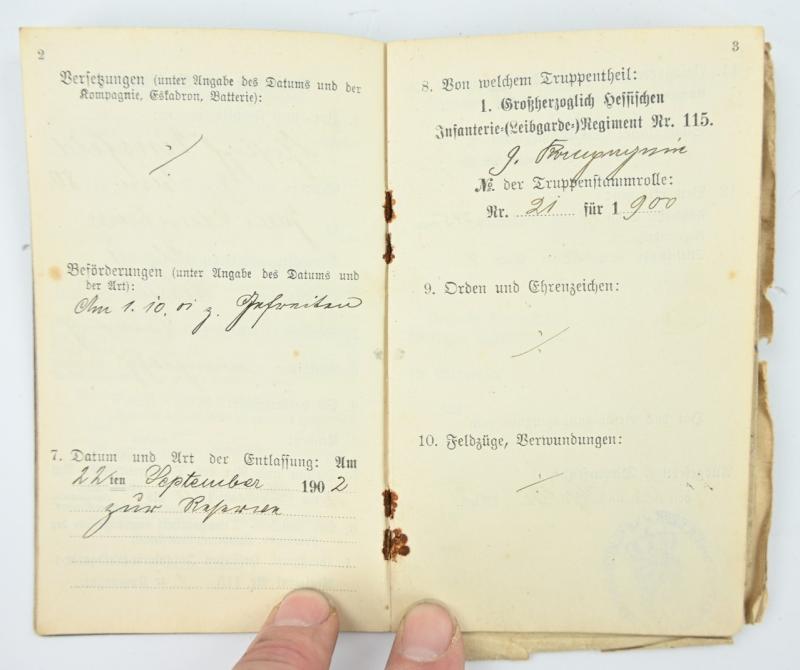 2
Versetzungen (unter Angabe des Datums und der
Kompagnie, Eskadron, Batterie):
./.
Beförderungen (unter Angabe des Datums und
der Art):
Am 1. 10. 01 z. Gefreiten
7. Datum und Art der Entlassung: Am
22ten September 1902
zur Reserve
3
8. Von welchem Truppentheil:
1. Großherzoglich Hessischen
Infanterie-(Leibgarde-)Regiment Nr. 115.
9. Kompagnie
No. der Truppenstammrolle:
Nr. 21 für 1900
9. Orden und Ehrenzeichen:
./.
10. Feldzüge, Verwundungen:
./.